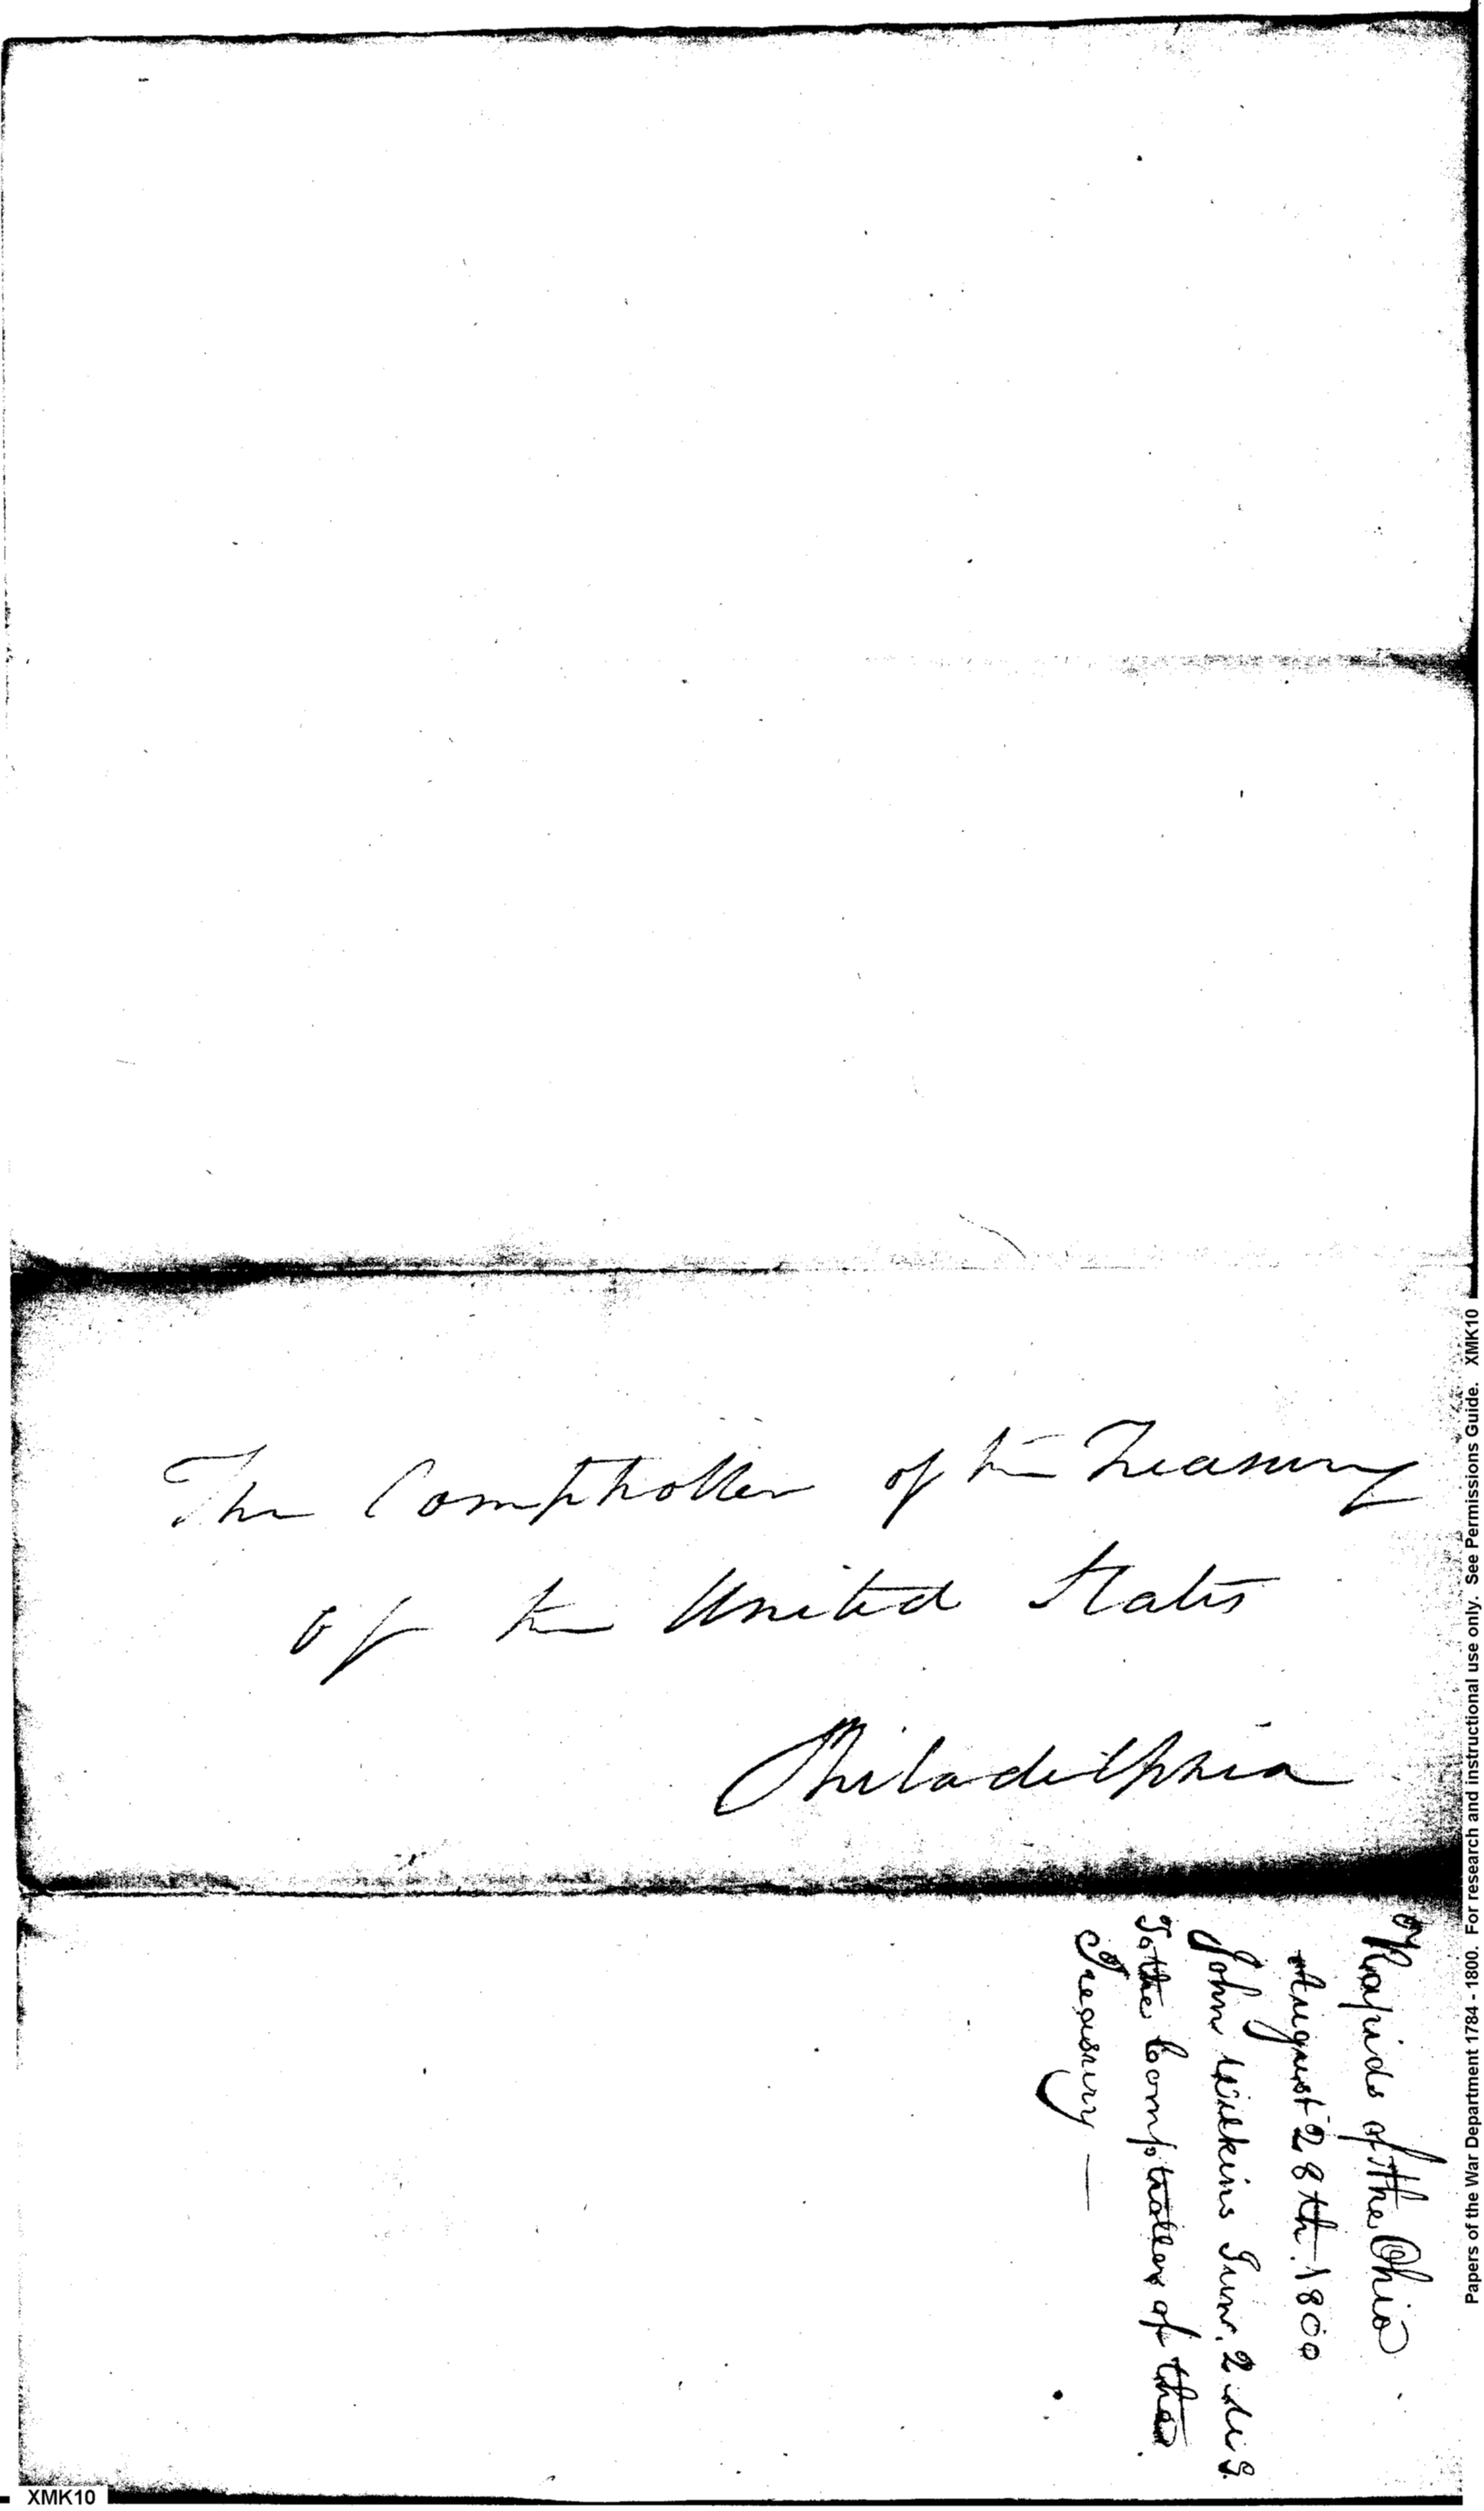 The Comptroller of the Treasury
of the United States
Philadelphia
Rapids of the Ohio
August 28th. 1800
John Wilkins Junr. 2. M G.
To the Comptroller of the
Treasury —
Papers of the War Department 1784 - 1800. For research and instructional use only. See Permissions Guide. XMK10
XMK10